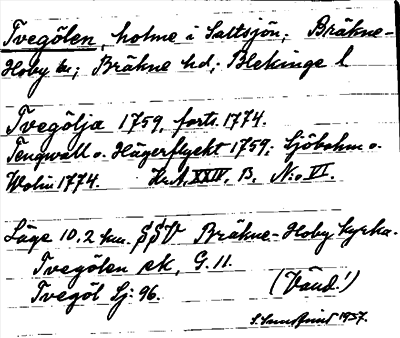 Tvegölen, holme i Saltsjön; Bräkne-
Hoby sn; Bräkne hd; Blekinge l
Tvegölja 1759, forts. 1774.
Tengwall o. Hägerflyckt 1759; Sjöbohm o.
Wolin 1774. Krt. XXIV, B, N:o VI.
Läge 10,2 km. SSV Bräkne-Hoby kyrka.
Tvegölen ek, G. 11.
Tvegöl Lj. 96. (Vänd!)
1937.